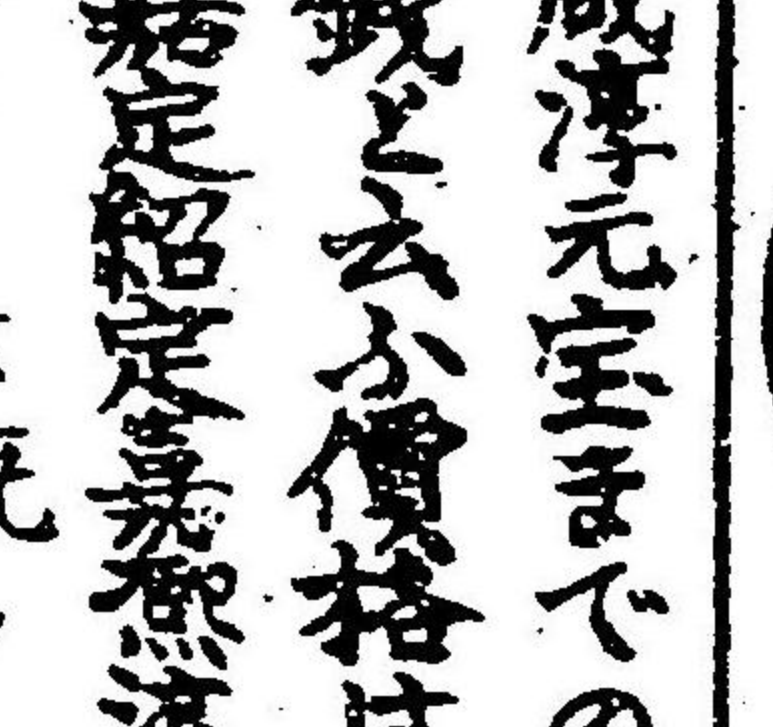 咸淳元宝までの
銭と云ふ價格は
嘉定紹定嘉熙淳